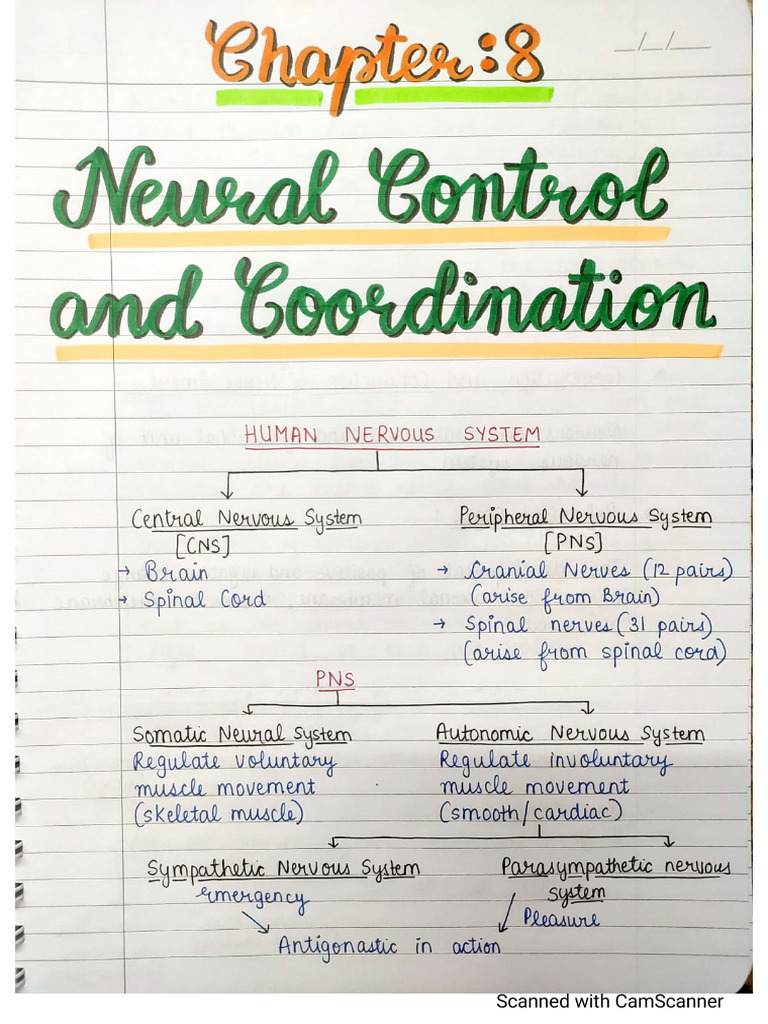 Chapter:8
_/_/__
Neural Control
and Coordination
HUMAN NERVOUS SYSTEM
Central Nervous System
[CNS]
→ Brain
→ Spinal Cord
Peripheral Nervous System
[PNS]
→ Cranial Nerves (12 pairs)
(arise from Brain)
→ Spinal nerves (31 pairs)
(arise from spinal cord)
PNS
Somatic Neural System
Regulate voluntary
muscle movement
(skeletal muscle)
Autonomic Nervous System
Regulate involuntary
muscle movement
(smooth/cardiac)
Sympathetic Nervous System
emergency
Parasympathetic nervous
system
Pleasure
Antigonastic in action
Scanned with CamScanner